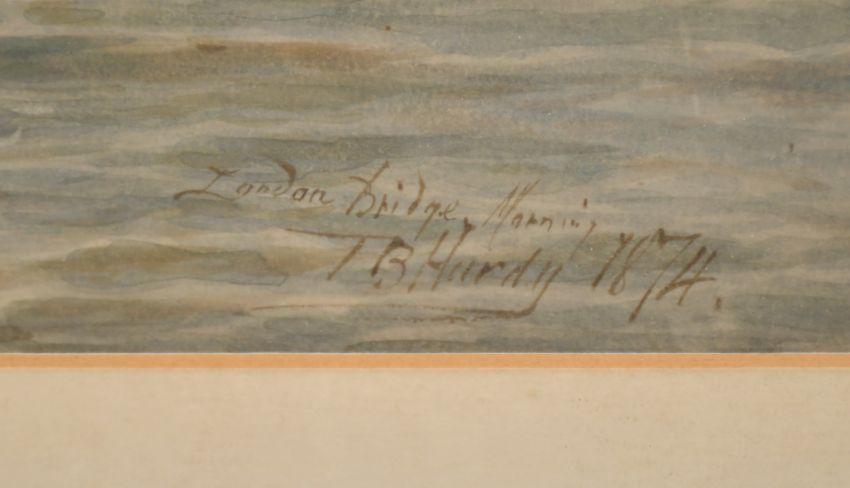 London Bridge, Morning
TB Hardy 1874.